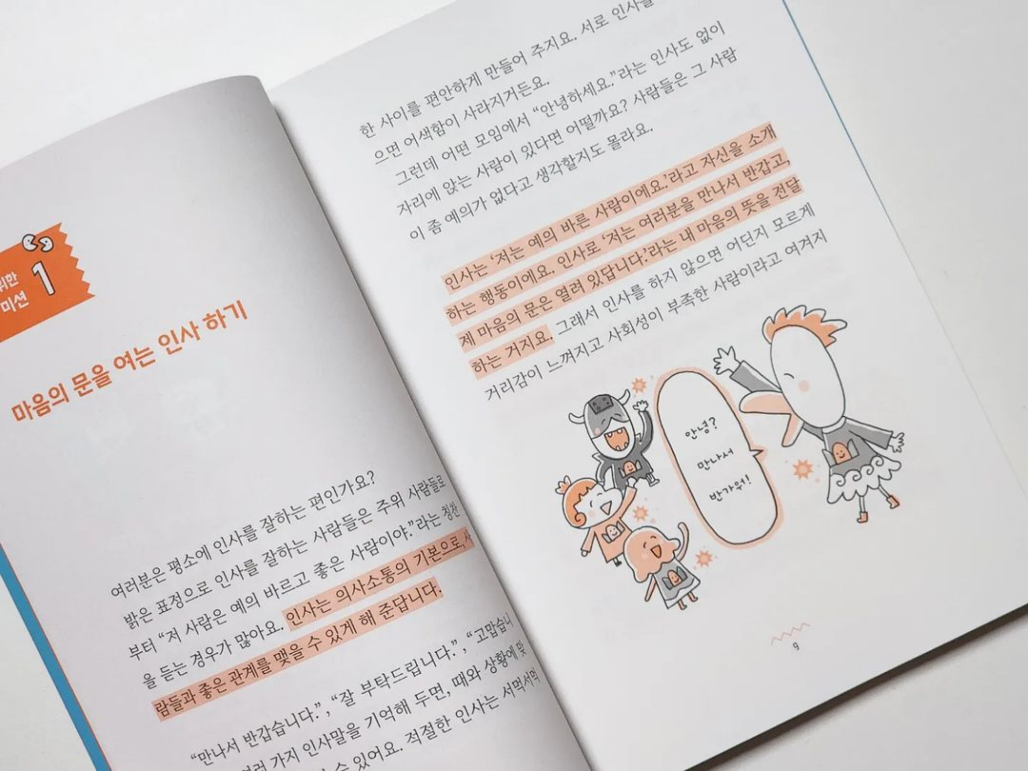 위한
미션
1
마음의 문을 여는 인사 하기
여러분은 평소에 인사를 잘하는 편인가요?
밝은 표정으로 인사를 잘하는 사람들은 주위 사람들로
부터 “저 사람은 예의 바르고 좋은 사람이야.”라는 칭찬
을 듣는 경우가 많아요. 인사는 의사소통의 기본으로,
람들과 좋은 관계를 맺을 수 있게 해 준답니다.
“만나서 반갑습니다.”, “잘 부탁드립니다.”, “고맙습니
가지 인사말을 기억해 두면, 때와 상황에
수 있어요. 적절한 인사는 서먹서먹
한 사이를 편안하게 만들어 주지요. 서로 인사를
으면 어색함이 사라지거든요.
그런데 어떤 모임에서 “안녕하세요.”라는 인사도 없이
자리에 앉는 사람이 있다면 어떨까요? 사람들은 그 사람
이 좀 예의가 없다고 생각할지도 몰라요.
인사는 ‘저는 예의 바른 사람이에요.’라고 자신을 소개
하는 행동이에요. 인사로 ‘저는 여러분을 만나서 반갑고,
제 마음의 문은 열려 있답니다.’라는 내 마음의 뜻을 전달
하는 거지요. 그래서 인사를 하지 않으면 어딘지 모르게
거리감이 느껴지고 사회성이 부족한 사람이라고 여겨지
안녕?
만나서
반가워!
9